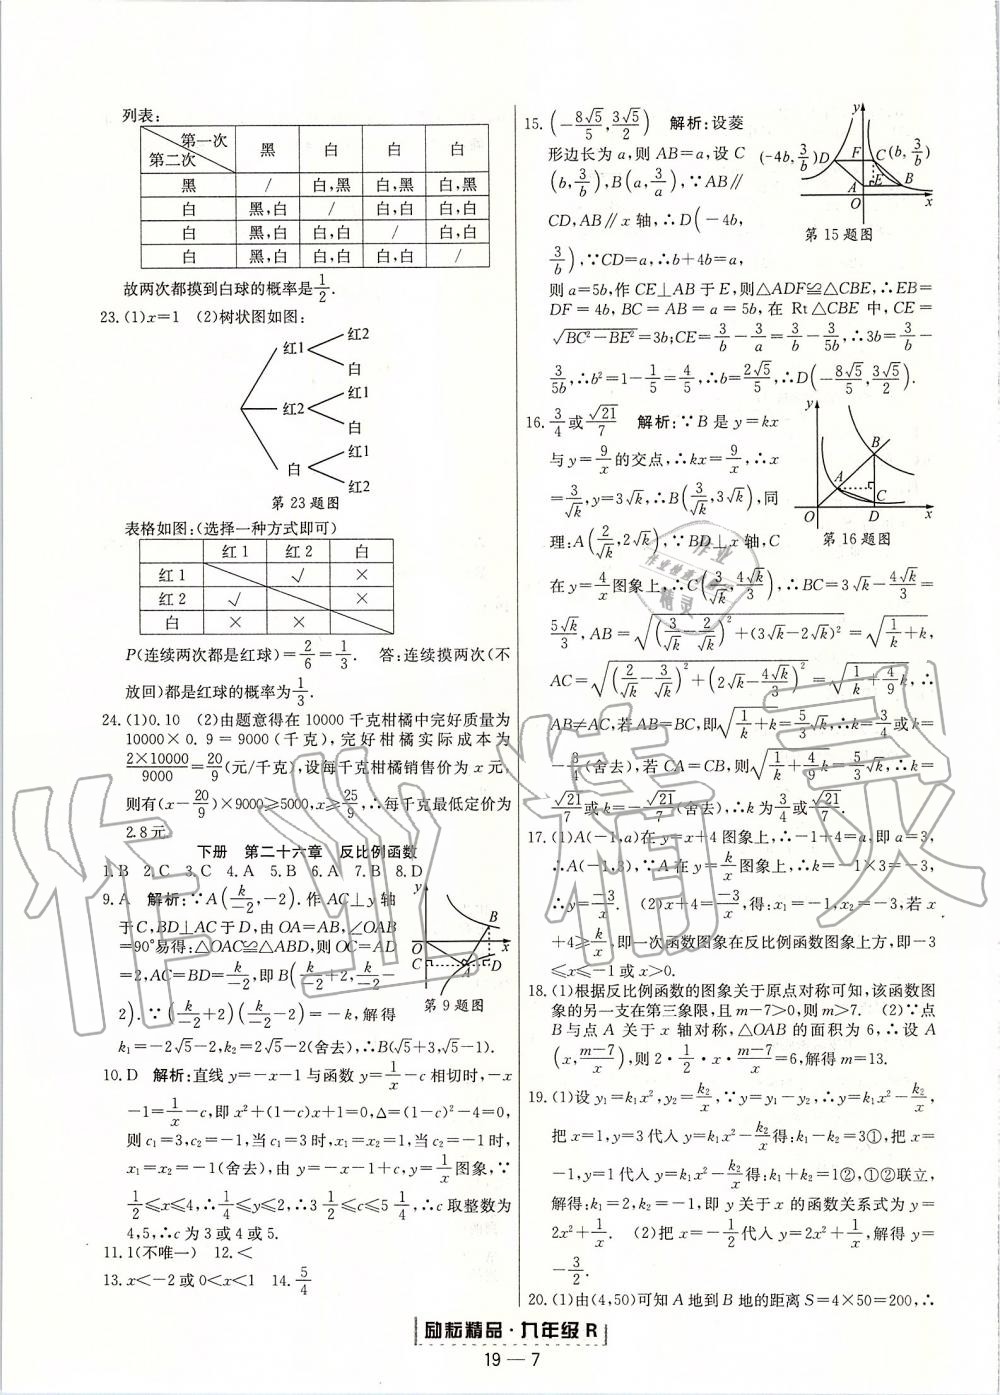 列表:
第一次 黑 白 白 白
第二次
黑 / 白,黑 白,黑 白,黑
白 黑,白 / 白,白 白,白
白 黑,白 白,白 / 白,白
白 黑,白 白,白 白,白 /
故两次都摸到白球的概率是1/2.
23.(1)x=1 (2)树状图如图:
红1 红2 白
红2 红1 白
白 红1 红2
第23题图
表格如图:(选择一种方式即可)
红1 红2 白
红1 √ ×
红2 √ ×
白 × ×
P(连续两次都是红球)=2/6=1/3. 答:连续摸两次(不
放回)都是红球的概率为1/3.
24.(1)0.10 (2)由题意得在10000千克柑橘中完好质量为
10000×0.9=9000(千克),完好柑橘实际成本为
2×10000/9000=20/9(元/千克),设每千克柑橘销售价为x元,
则有(x-20/9)×9000≥5000,x≥25/9,∴每千克最低定价为
2.8元
下册 第二十六章 反比例函数
1.B 2.C 3.C 4.A 5.B 6.A 7.B 8.D
9.A 解析:∵A(k/-2,-2).作AC⊥y轴
于C,BD⊥AC于D,由OA=AB,∠OAB
=90°易得:△OAC≌△ABD,则OC=AD
=2,AC=BD=k/-2,即B(k/-2+2,k/-2-
2).∵(k/-2+2)(k/-2-2)=-k,解得
k₁=-2√5-2,k₂=2√5-2(舍去),∴B(√5+3,√5-1).
y B O x C A D
第9题图
10.D 解析:直线y=-x-1与函数y=1/x-c相切时,-x
-1=1/x-c,即x²+(1-c)x+1=0,Δ=(1-c)²-4=0,
则c₁=3,c₂=-1,当c=3时,x₁=x₂=1,当c=-1时,
x₁=x₂=-1(舍去),由y=-1/x+c得c=y+1/x图象,∵
1/2≤x≤4,∴1/4≤y≤2,∴3 1/4≤c≤5 1/2,∴c取整数为
4,5,∴c为3或4或5.
11.1(不唯一) 12.<
13.x<-2或0<x<1 14.5/4
15.(-8√5/5,3√5/2) 解析:设菱
形边长为a,则AB=a,设C
(b,3/b),B(a,3/a),∵AB∥
CD,AB∥x轴,∴D(-4b,
3/b),∵CD=a,∴b+4b=a,
y (-4b,3/b)D F C(b,3/b) A E B O x
第15题图
则a=5b,作CE⊥AB于E,则△ADF≌△CBE,∴EB=
DF=4b,BC=AB=a=5b,在Rt△CBE中,CE=
√(BC²-BE²)=3b;CE=3/b-3/a=3/b-3/5b,∴3b=3/b-
3/5b,∴b²=1-1/5=4/5,∴b=2√5/5,∴D(-8√5/5,3√5/2).
16.3/4或√21/7 解析:∵B是y=kx
与y=9/x的交点,∴kx=9/x,∴x
=3/√k,y=3√k,∴B(3/√k,3√k),同
理:A(2/√k,2√k),∵BD⊥x轴,C
y B A C O D x
第16题图
在y=4/x图象上,∴C(3/√k,4√k/3),∴BC=3√k-4√k/3=
5√k/3,AB=√((3/√k-2/√k)²+(3√k-2√k)²)=√(1/k+k),
AC=√((2/√k-3/√k)²+(2√k-4√k/3)²)=√(1/k+4/9k),∴
AB≠AC,若AB=BC,即√(1/k+k)=5/3√k,∴k=3/4或k=
-3/4(舍去),若CA=CB,则√(1/k+4/9k)=5/3√k,∴k=
√21/7或k=-√21/7(舍去),∴k为3/4或√21/7.
17.(1)A(-1,a)在y=x+4图象上,∴-1+4=a,即a=3,
∴A(-1,3),∵A在y=k/x图象上,∴k=-1×3=-3,
∴y=-3/x. (2)x+4=-3/x,得:x₁=-1,x₂=-3,若x
+4≥k/x,即一次函数图象在反比例函数图象上方,即-3
≤x≤-1或x>0.
18.(1)根据反比例函数的图象关于原点对称可知,该函数图
象的另一支在第三象限,且m-7>0,则m>7. (2)∵点
B与点A关于x轴对称,△OAB的面积为6,∴设A
(x,m-7/x),则2·1/2·x·m-7/x=6,解得m=13.
19.(1)设y₁=k₁x²,y₂=k₂/x,∵y=y₁-y₂,∴y=k₁x²-k₂/x,
把x=1,y=3代入y=k₁x²-k₂/x得:k₁-k₂=3①,把x=
-1,y=1代入y=k₁x²-k₂/x得:k₁+k₂=1②,①②联立,
解得:k₁=2,k₂=-1,即y关于x的函数关系式为y=
2x²+1/x. (2)把x=-1/2代入y=2x²+1/x,解得y=
-3/2.
20.(1)由(4,50)可知A地到B地的距离S=4×50=200,∴
励耘精品·九年级R
19—7
作业精灵